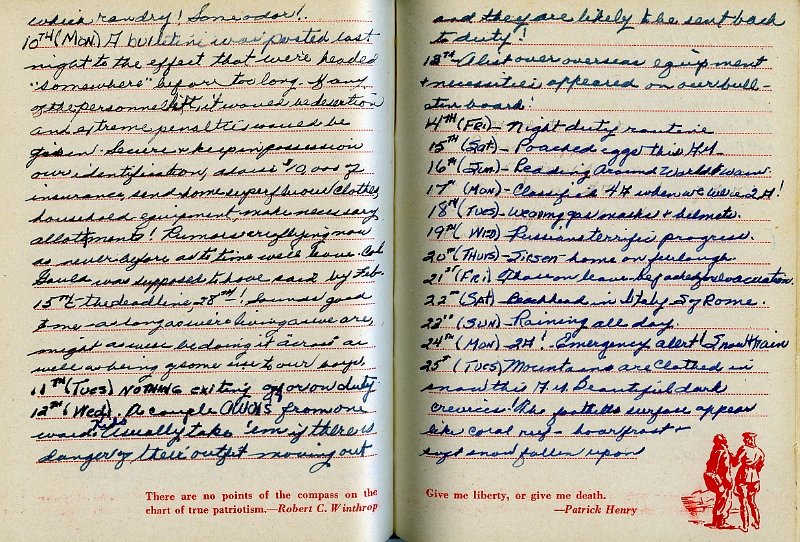 which randry! Some odor!..
10TH (MON) A bulletine was posted last
night to the effect that we're headed
"somewhere" before too long. If any
of the personnel left, it would be desertion
and extreme penalties would be
given. Secure & keep in possession
our identification, advise $10,000 of
insurance, send home superfluous clothes,
household equipment, make necessary
allottments! Rumors are flying now
as never before as to time we'll leave. Col.
Gauld was supposed to have said by Feb.
15TH - the deadline, 28TH! Sounds good
to me - as long as we're living as we are,
might as well be doing it across as
well as being of some use to our boys.
11TH (TUES) NOTHING exiting off or on duty
12TH (Wed). A couple AWOL's from one
ward. They usually take 'em if there is
danger of their outfit moving out
There are no points of the compass on the
chart of true patriotism.—Robert C. Winthrop
and they are likely to be sent back
to duty!
13TH A list over overseas equipment
+ necessities appeared on our bull-
etin board!
14TH (FRI) - Night duty routine
15TH (SAT) - Poached eggs this A.M.
16TH (SUN) - Reading Around World in
17TH (MON) - Classified 4A when we were 2A!
18TH (TUES) - Wearing gas masks & helmets.
19TH (WED) Russians terrific progress.
20TH (THURS) - home on furlough
21ST (FRI) Those on leave for evacuation.
22ND (SAT) Beachhead in Italy S of Rome.
23RD (SUN) - Raining all day.
24TH (MON) 2A! Emergency alert! Snow & rain
25T (TUES) Mountains are clothed in
snow this A.M. Beautiful dark
crevices! The surface appear
like coral reef - hoarfrost +
soft snow fallen upon
Give me liberty, or give me death.
—Patrick Henry